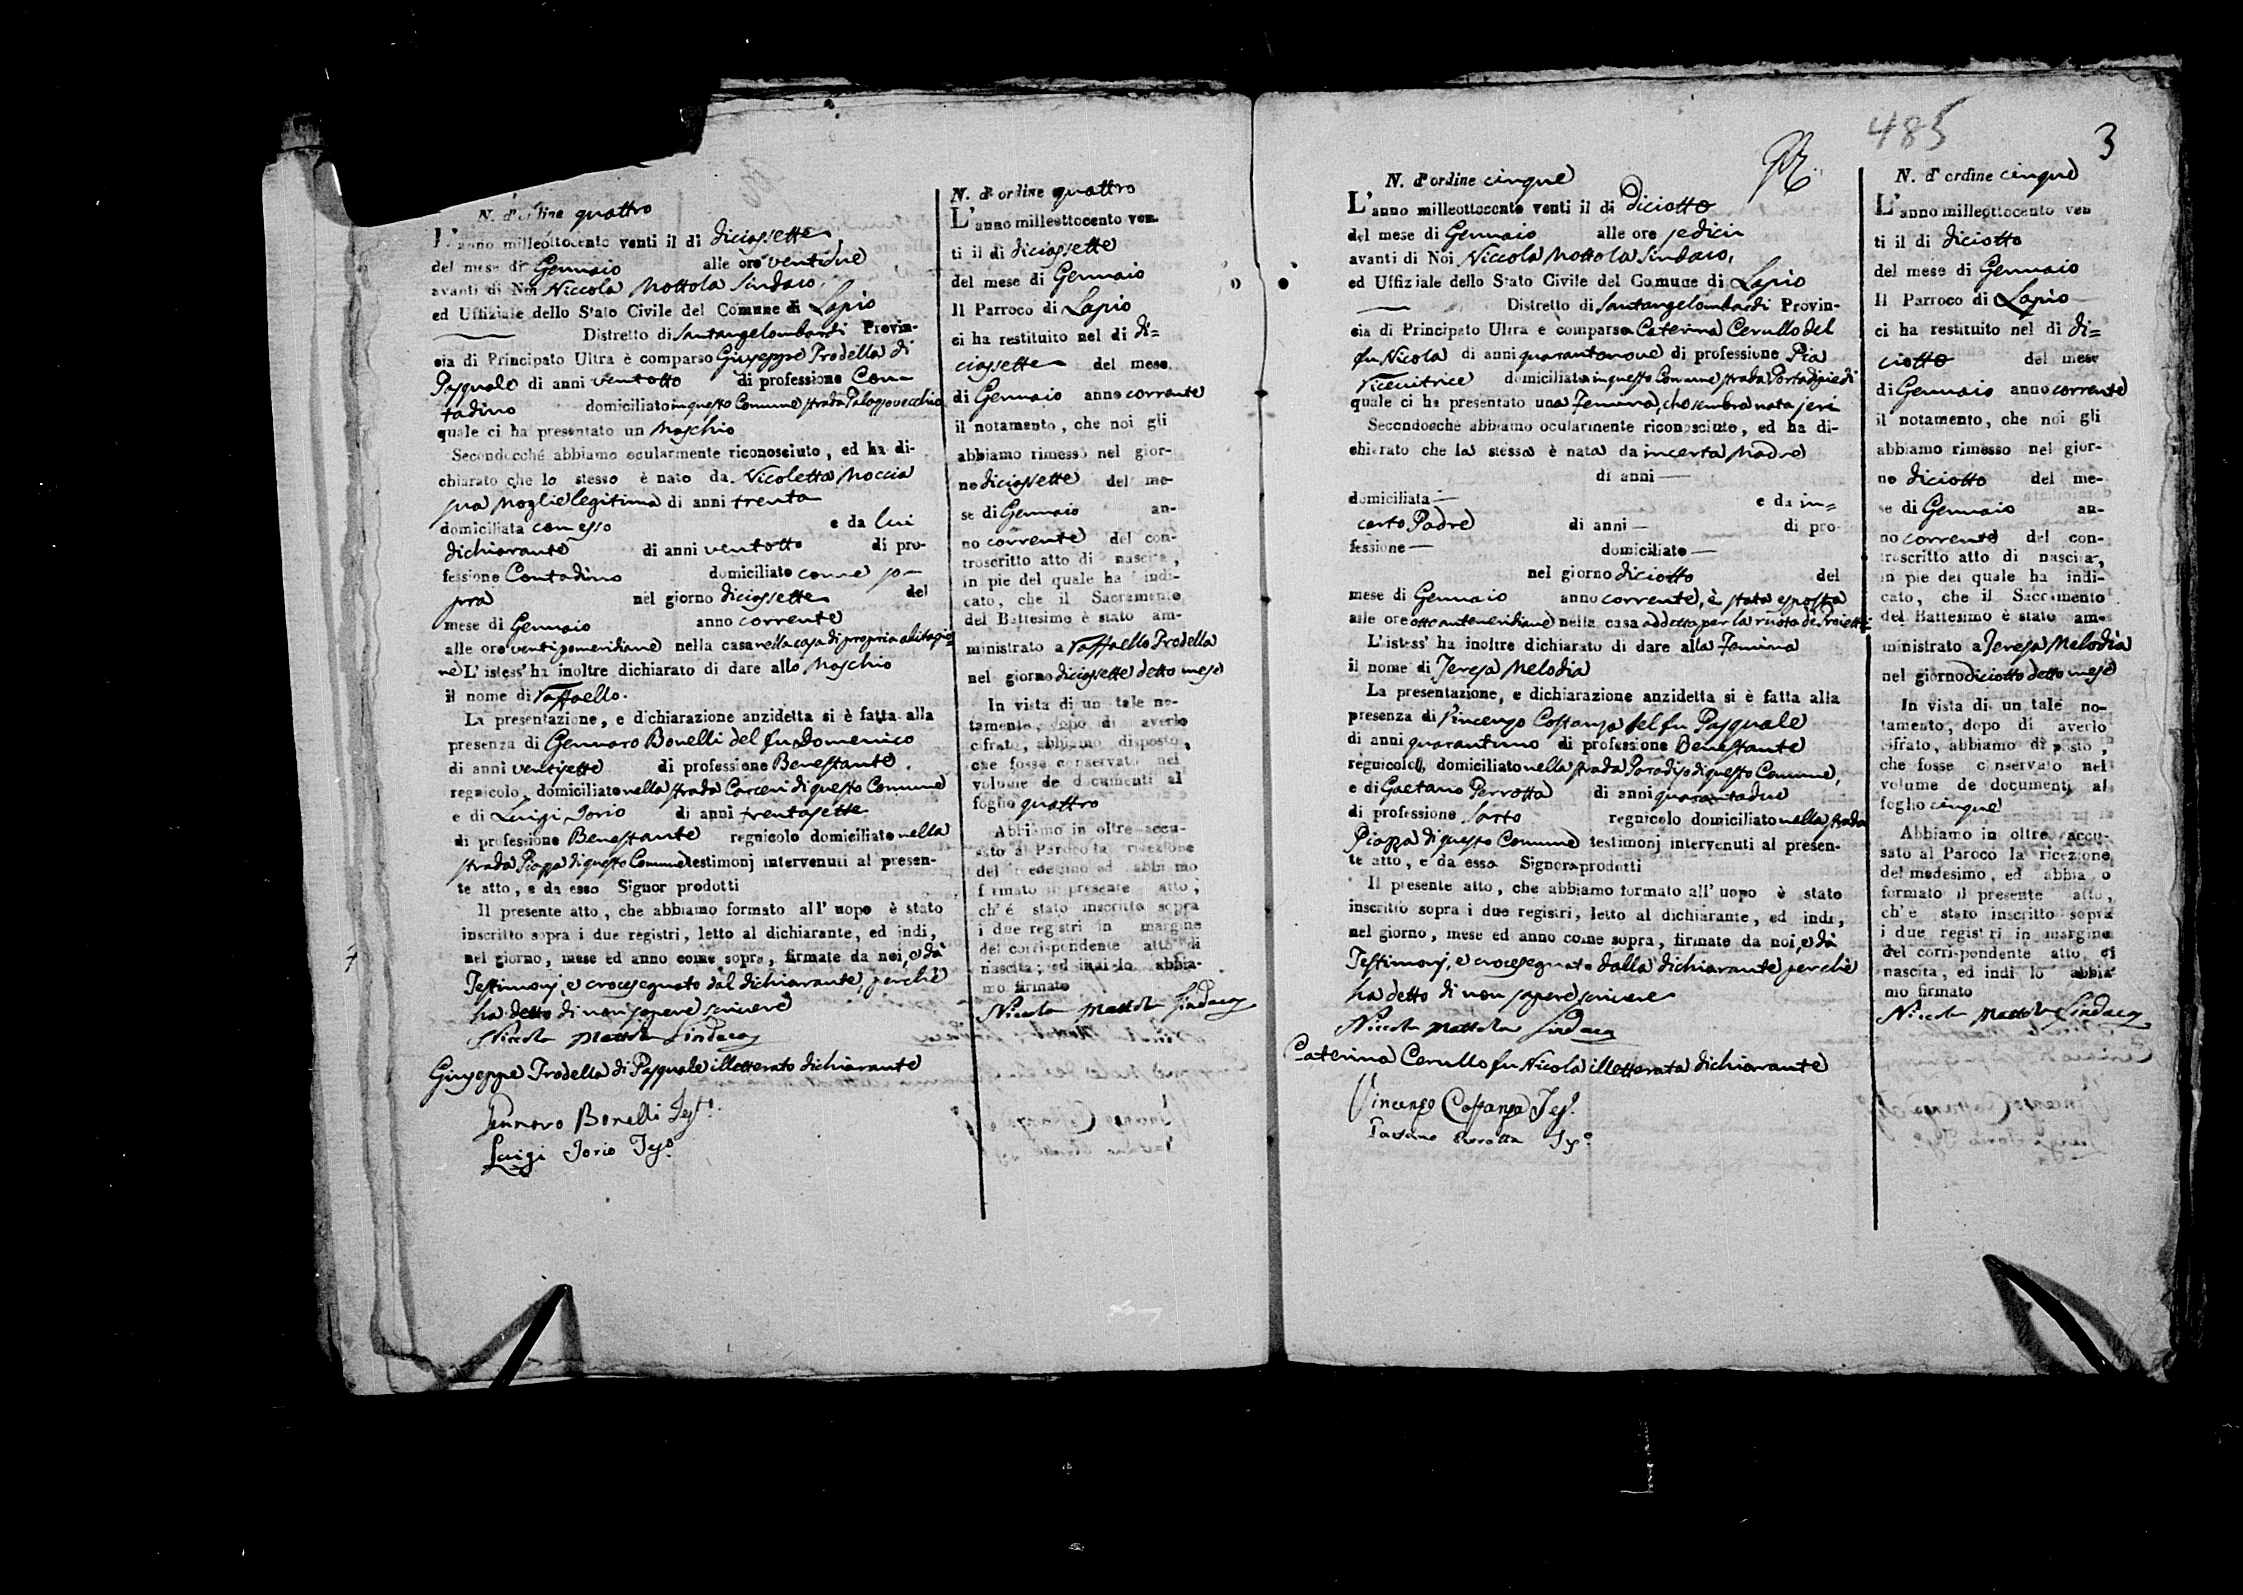 N. d'ordine quattro
L'anno milleottocento venti il di diciassette
del mese di Gennaio alle ore ventidue
avanti di Noi Niccola Mottola Sindaco,
ed Uffiziale dello Stato Civile del Comune di Lapio
Distretto di Santangelombardi Provin-
cia di Principato Ultra è comparso Giuseppe Prodella di
Pasquale di anni ventotto di professione Con-
tadino domiciliato in questo Comune strada Palazzovecchio
quale ci ha presentato un Maschio
Secondocché abbiamo ocularmente riconosciuto, ed ha di-
chiarato che lo stesso è nato da Nicoletta Moccia
sua Moglie legitima di anni trenta
domiciliata con esso e da lui
dichiarante di anni ventotto di pro-
fessione Contadino domiciliato come so-
pra nel giorno diciassette del
mese di Gennaio anno corrente
alle ore venti pomeridiane nella casa nella casa di propria abitagio-
ne L'istess' ha inoltre dichiarato di dare allo Maschio
il nome di Raffaello.
La presentazione, e dichiarazione anzidetta si è fatta alla
presenza di Gennaro Bonelli del fu Domenico
di anni ventisette di professione Benestante.
regnicolo, domiciliato nella strada Carceri di questo Comune
e di Luigi Iorio di anni trentasette
di professione Benestante regnicolo domiciliato nella
strada Piazza di questo Comune testimonj intervenuti al presen-
te atto, e da esso Signor prodotti
Il presente atto, che abbiamo formato all' uopo è stato
inscritto sopra i due registri, letto al dichiarante, ed indi,
nel giorno, mese ed anno come sopra, firmate da noi, e dà
Testimonj, e crocesegnato dal dichiarante, perchè
ha detto di non sapere scrivere
Niccola Mottola Sindaco
Giuseppe Prodella di Pasquale illetterato dichiarante
Gennaro Bonelli Tes.o
Luigi Iorio Tes.o
N. d'ordine quattro
L'anno milleottocento ven-
ti il di diciassette
del mese di Gennaio
Il Parroco di Lapio
ci ha restituito nel di di=
ciassette del mese
di Gennaio anno corrente
il notamento, che noi gli
abbiamo rimesso nel gior-
no diciassette del me-
se di Gennaio an-
no corrente del con-
troscritto atto di nascita,
in pie del quale ha indi-
cato, che il Sacramento
del Battesimo è stato am-
ministrato a Raffaello Prodella
nel giorno diciassette detto mese
In vista di un tale no-
tamento, dopo di averlo
cifrato, abbiamo disposto,
che fosse conservato nel
volume de documenti al
foglio quattro
Abbiamo in oltre accu-
sato al Paroco la ricezione
del medesimo ed abbiamo
formato il presente atto,
ch' é stato inscritto sopra
i due registri in margine
del corrispondente atto di
nascita; ed indi lo abbia-
mo firmato
Niccola Mottola Sindaco
485
3
N. d'ordine cinque
L'anno milleottocento venti il di Diciotto
del mese di Gennaio alle ore sedici
avanti di Noi Niccola Mottola Sindaco,
ed Uffiziale dello Stato Civile del Comune di Lapio
Distretto di Santangelombardi Provin-
cia di Principato Ultra è comparsa Caterina Cerullo del
fu Nicola di anni quarantanove di professione Pia
Ricevitrice domiciliata in questo Comune strada Portadipiedi
quale ci ha presentato una Femina, che sembra nata jeri
Secondocché abbiamo ocularmente riconosciuto, ed ha di-
chiarato che la stessa è nata da incerta Madre
di anni
domiciliata e da in=
certo Padre di anni di pro-
fessione domiciliato
nel giorno diciotto del
mese di Gennaio anno corrente, è stata esposta
alle ore otto antemeridiane nella casa addetta per la ruota de' Proietti
L'istess' ha inoltre dichiarato di dare alla Femina
il nome di Teresa Melodia
La presentazione, e dichiarazione anzidetta si è fatta alla
presenza di Vincenzo Costanza del fu Pasquale
di anni quarantuno di professione Benestante
regnicolo, domiciliato nella strada Paradiso di questo Comune,
e di Gaetano Perrotta di anni quarantadue
di professione Sarto regnicolo domiciliato nella strada
Piazza di questo Comune testimonj intervenuti al presen-
te atto, e da essa Signora prodotti
Il presente atto, che abbiamo formato all' uopo è stato
inscritto sopra i due registri, letto al dichiarante, ed indi,
nel giorno, mese ed anno come sopra, firmate da noi, e dà
Testimonj, e crocesegnato dalla dichiarante perchè
ha detto di non sapere scrivere
Niccola Mottola Sindaco
Caterina Cerullo fu Nicola illetterata dichiarante
Vincenzo Costanza Tes.o
Gaetano Perrotta Tes.o
N. d'ordine cinque
L'anno milleottocento ven
ti il di diciotto
del mese di Gennaio
Il Parroco di Lapio
ci ha restituito nel di di=
ciotto del mese
di Gennaio anno corrente
il notamento, che noi gli
abbiamo rimesso nel gior-
no diciotto del me-
se di Gennaio an-
no corrente del con-
troscritto atto di nascita,
in pie del quale ha indi-
cato, che il Sacramento
del Battesimo è stato am-
ministrato a Teresa Melodia
nel giorno diciotto detto mese
In vista di un tale no-
tamento, dopo di averlo
cifrato, abbiamo disposto,
che fosse conservato nel
volume de documenti al
foglio cinque
Abbiamo in oltre accu-
sato al Paroco la ricezione
del medesimo, ed abbiamo
formato il presente atto,
ch'e stato inscritto sopra
i due registri in margine
del corrispondente atto di
nascita, ed indi lo abbia
mo firmato
Niccola Mottola Sindaco